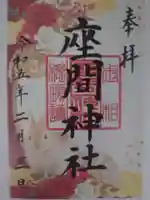 奉拝
座間神社
令和五年二月三日